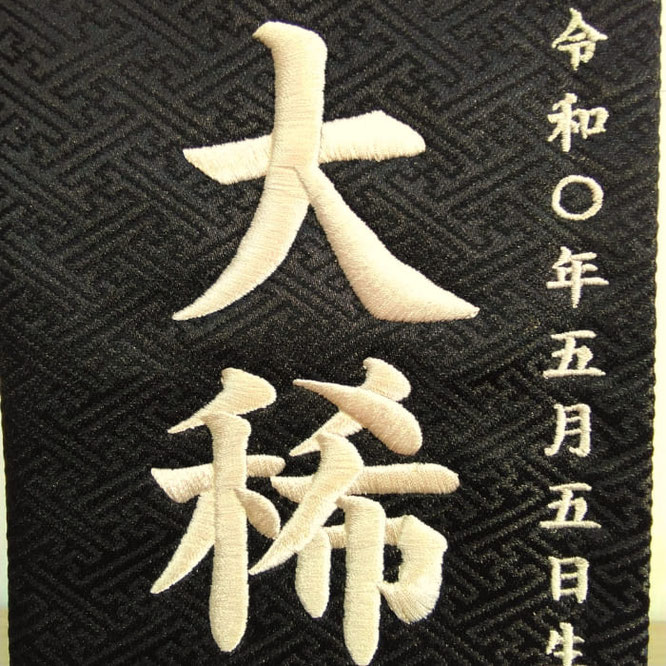 令和〇年五月五日生
大稀